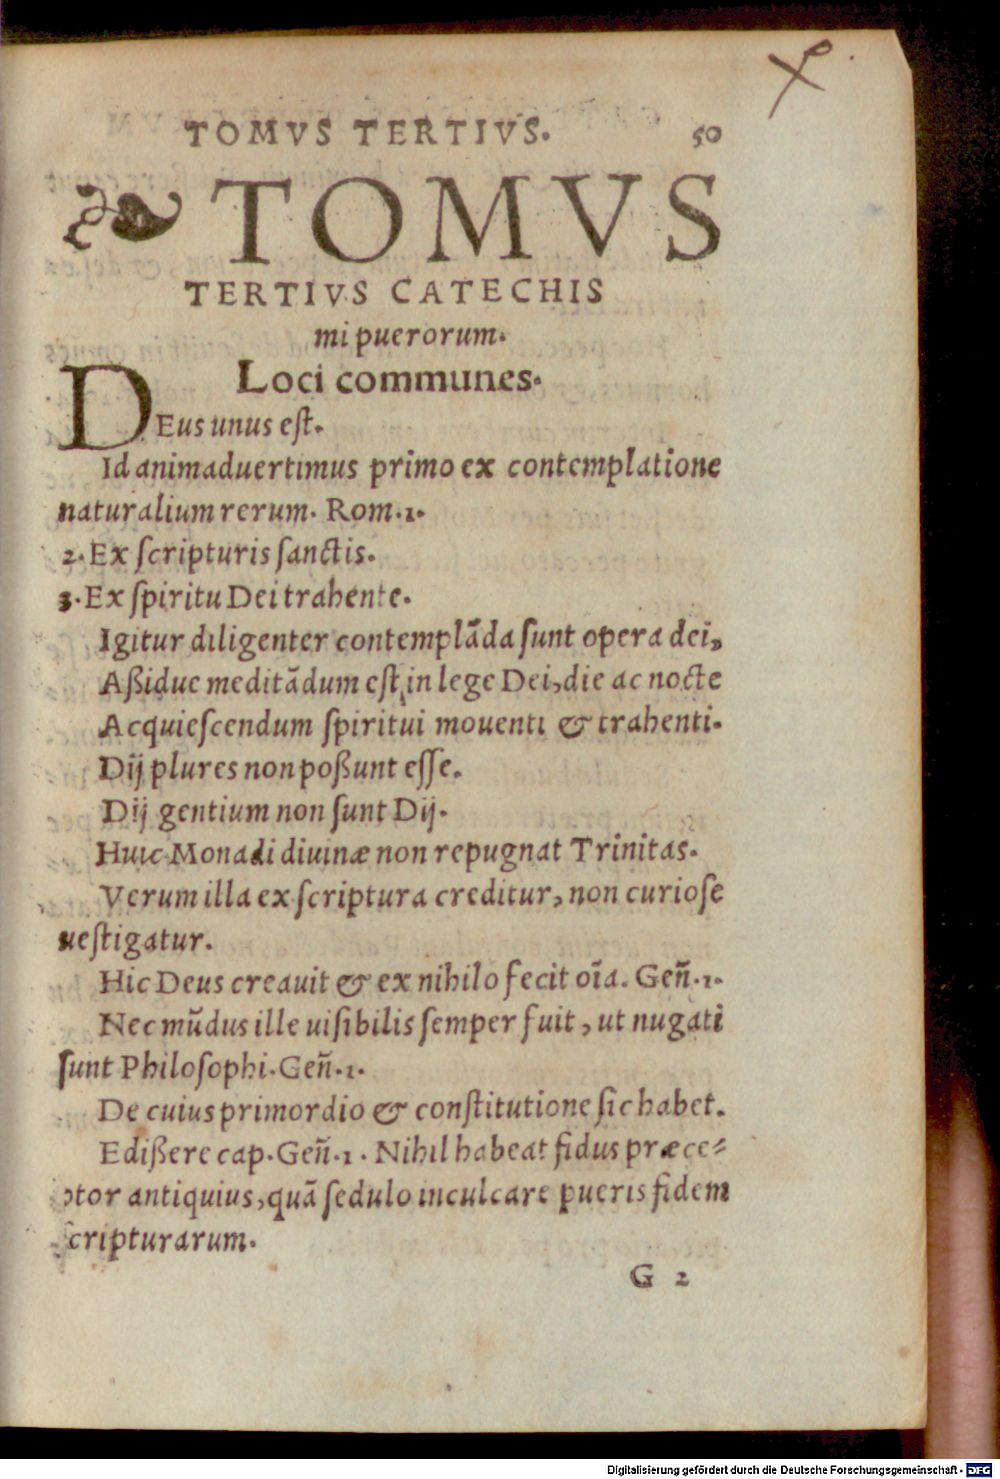 TOMVS TERTIVS. 50
TOMVS
TERTIVS CATECHIS
mi puerorum.
Loci communes.
DEus unus eſt.
Id animaduertimus primo ex contemplatione
naturalium rerum. Rom.1.
2. Ex ſcripturis ſanctis.
3. Ex ſpiritu Dei trahente.
Igitur diligenter contemplãda ſunt opera dei,
Aßidue meditãdum eſt in lege Dei, die ac nocte
Acquieſcendum ſpiritui mouenti & trahenti.
Dij plures non poßunt eſſe.
Dij gentium non ſunt Dij.
Huic Monadi diuinæ non repugnat Trinitas.
Verum illa ex ſcriptura creditur, non curioſe
ueſtigatur.
Hic Deus creauit & ex nihilo fecit oĩa. Geñ.1.
Nec mũdus ille uiſibilis ſemper fuit, ut nugati
ſunt Philoſophi. Geñ.1.
De cuius primordio & conſtitutione ſic habet.
Edißere cap. Geñ.1. Nihil habeat fidus præce⸗
ptor antiquius, quã ſedulo inculcare pueris fidem
ſcripturarum.
G 2
Digitalisierung gefördert durch die Deutsche Forschungsgemeinschaft - DFG